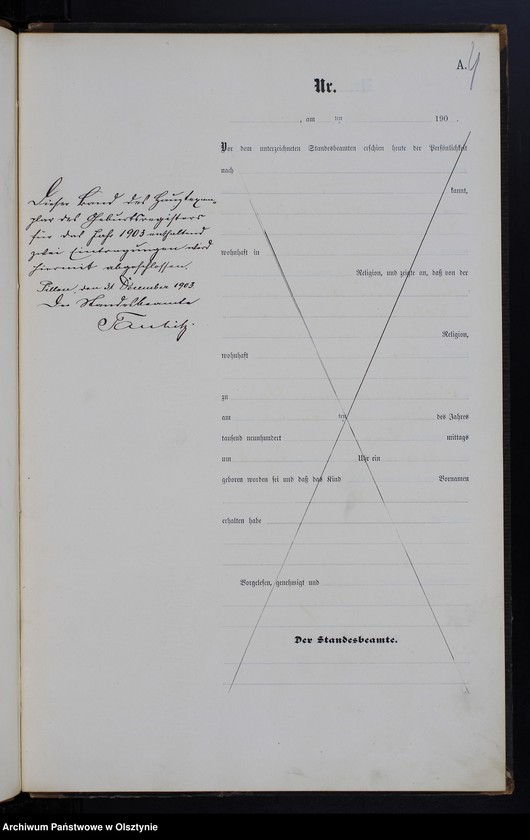 A. 4
Nr.
, am ten 190 .
Vor dem unterzeichneten Standesbeamten erschien heute der Persönlichkeit
nach
kannt,
wohnhaft in
Religion, und zeigte an, daß von der
Religion,
wohnhaft
zu
am ten des Jahres
tausend neunhundert mittags
um Uhr ein
geboren worden sei und daß das Kind Vornamen
erhalten habe
Vorgelesen, genehmigt und
Der Standesbeamte.
Dieser Band des Hauptexem-
plar des Geburtsregisters
für das Jahr 1903 enthaltend
zwei Eintragungen wird
hiermit abgeschlossen.
den 31 December 1903
Der Standesbeamte
Archiwum Państwowe w Olsztynie